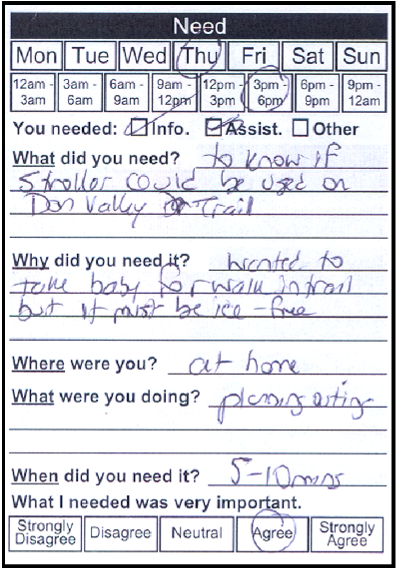 Need
Mon Tue Wed Thu Fri Sat Sun
12am - 3am 3am - 6am 6am - 9am 9am - 12pm 12pm - 3pm 3pm - 6pm 6pm - 9pm 9pm - 12am
You needed: Info. Assist. Other
What did you need? to know if
stroller could be used on
Don Valley Trail
Why did you need it? wanted to
take baby for walk in trail
but it must be ice-free
Where were you? at home
What were you doing? planning outing
When did you need it? 5-10mins
What I needed was very important.
Strongly Disagree Disagree Neutral Agree Strongly Agree